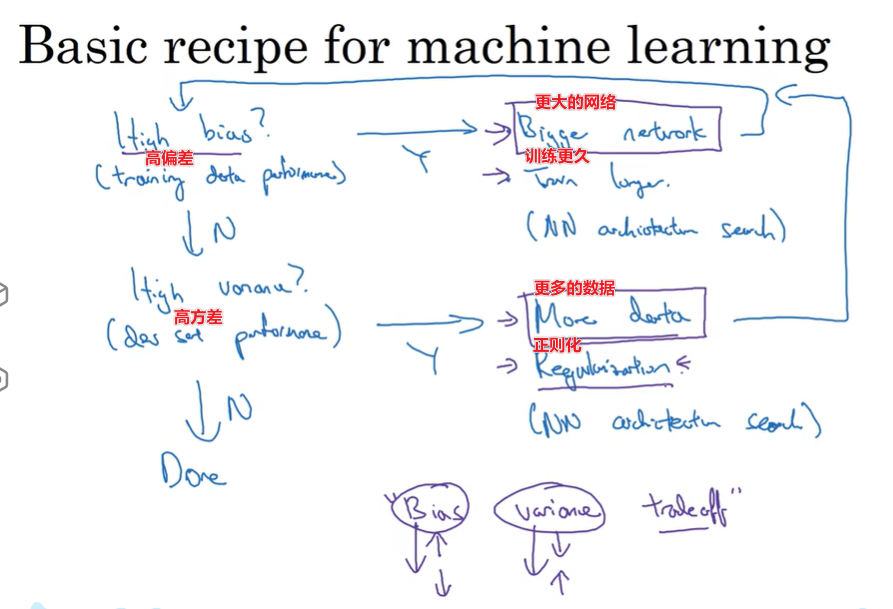 Basic recipe for machine learning
High bias?
高偏差
(training data performance)
Y
更大的网络
Bigger network
训练更久
Train longer.
(NN architecture search)
N
High variance?
高方差
(dev set performance)
Y
更多的数据
More data
正则化
Regularization
(NN architecture search)
N
Done
"Bias variance tradeoff"